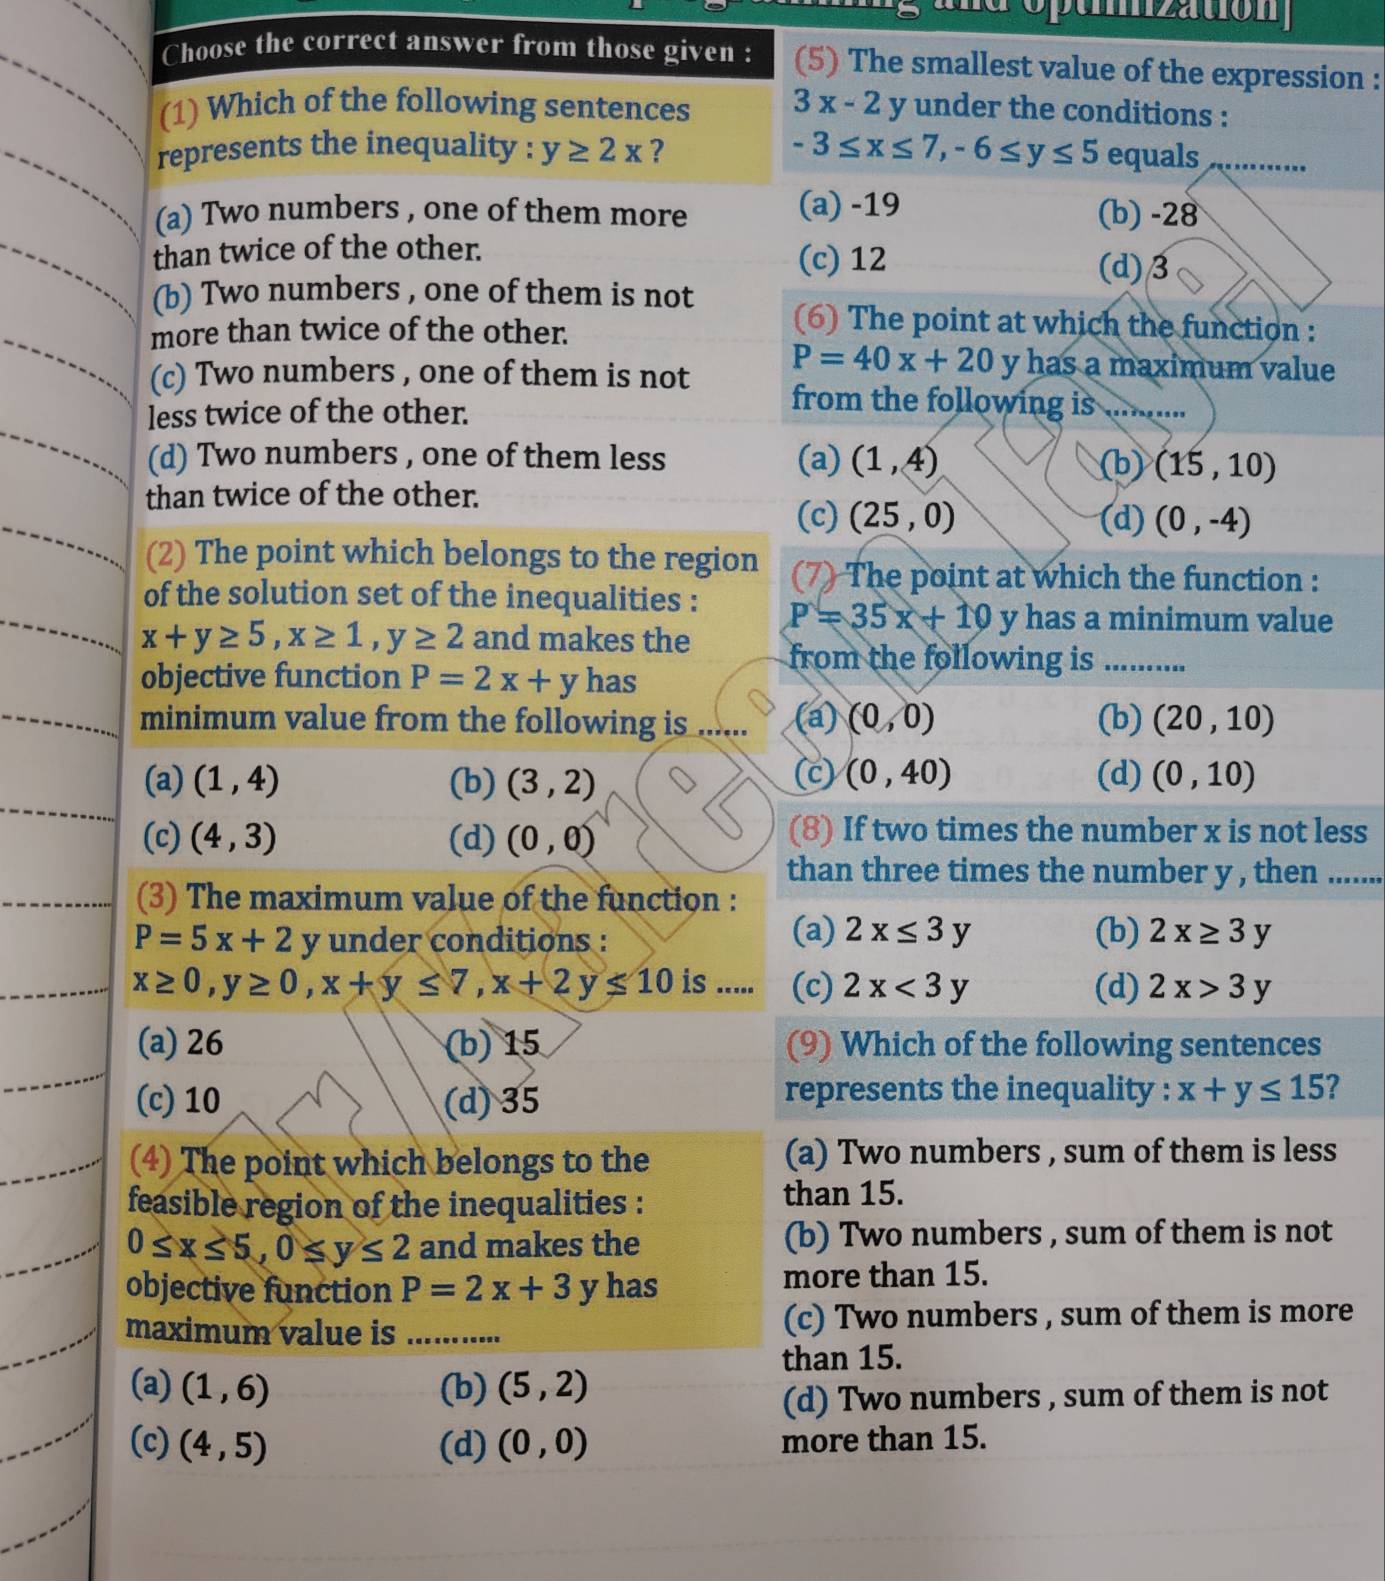 and optimization]
Choose the correct answer from those given :
(1) Which of the following sentences
represents the inequality : y ≥ 2 x ?
(a) Two numbers , one of them more
than twice of the other.
(b) Two numbers , one of them is not
more than twice of the other.
(c) Two numbers , one of them is not
less twice of the other.
(d) Two numbers , one of them less
than twice of the other.
(2) The point which belongs to the region
of the solution set of the inequalities :
x + y ≥ 5 , x ≥ 1 , y ≥ 2 and makes the
objective function P = 2 x + y has
minimum value from the following is ......
(a) (1 , 4) (b) (3 , 2)
(c) (4 , 3) (d) (0 , 0)
(3) The maximum value of the function :
P = 5 x + 2 y under conditions :
x ≥ 0 , y ≥ 0 , x + y ≤ 7 , x + 2 y ≤ 10 is .....
(a) 26 (b) 15
(c) 10 (d) 35
(4) The point which belongs to the
feasible region of the inequalities :
0 ≤ x ≤ 5 , 0 ≤ y ≤ 2 and makes the
objective function P = 2 x + 3 y has
maximum value is ...........
(a) (1 , 6) (b) (5 , 2)
(c) (4 , 5) (d) (0 , 0)
(5) The smallest value of the expression :
3 x - 2 y under the conditions :
- 3 ≤ x ≤ 7, - 6 ≤ y ≤ 5 equals ............
(a) -19 (b) -28
(c) 12 (d) 3
(6) The point at which the function :
P = 40 x + 20 y has a maximum value
from the following is ..........
(a) (1 , 4) (b) (15 , 10)
(c) (25 , 0) (d) (0 , -4)
(7) The point at which the function :
P = 35 x + 10 y has a minimum value
from the following is ..........
(a) (0 , 0) (b) (20 , 10)
(c) (0 , 40) (d) (0 , 10)
(8) If two times the number x is not less
than three times the number y , then .......
(a) 2 x ≤ 3 y (b) 2 x ≥ 3 y
(c) 2 x < 3 y (d) 2 x > 3 y
(9) Which of the following sentences
represents the inequality : x + y ≤ 15?
(a) Two numbers , sum of them is less
than 15.
(b) Two numbers , sum of them is not
more than 15.
(c) Two numbers , sum of them is more
than 15.
(d) Two numbers , sum of them is not
more than 15.
Mr/Kareem Tayel